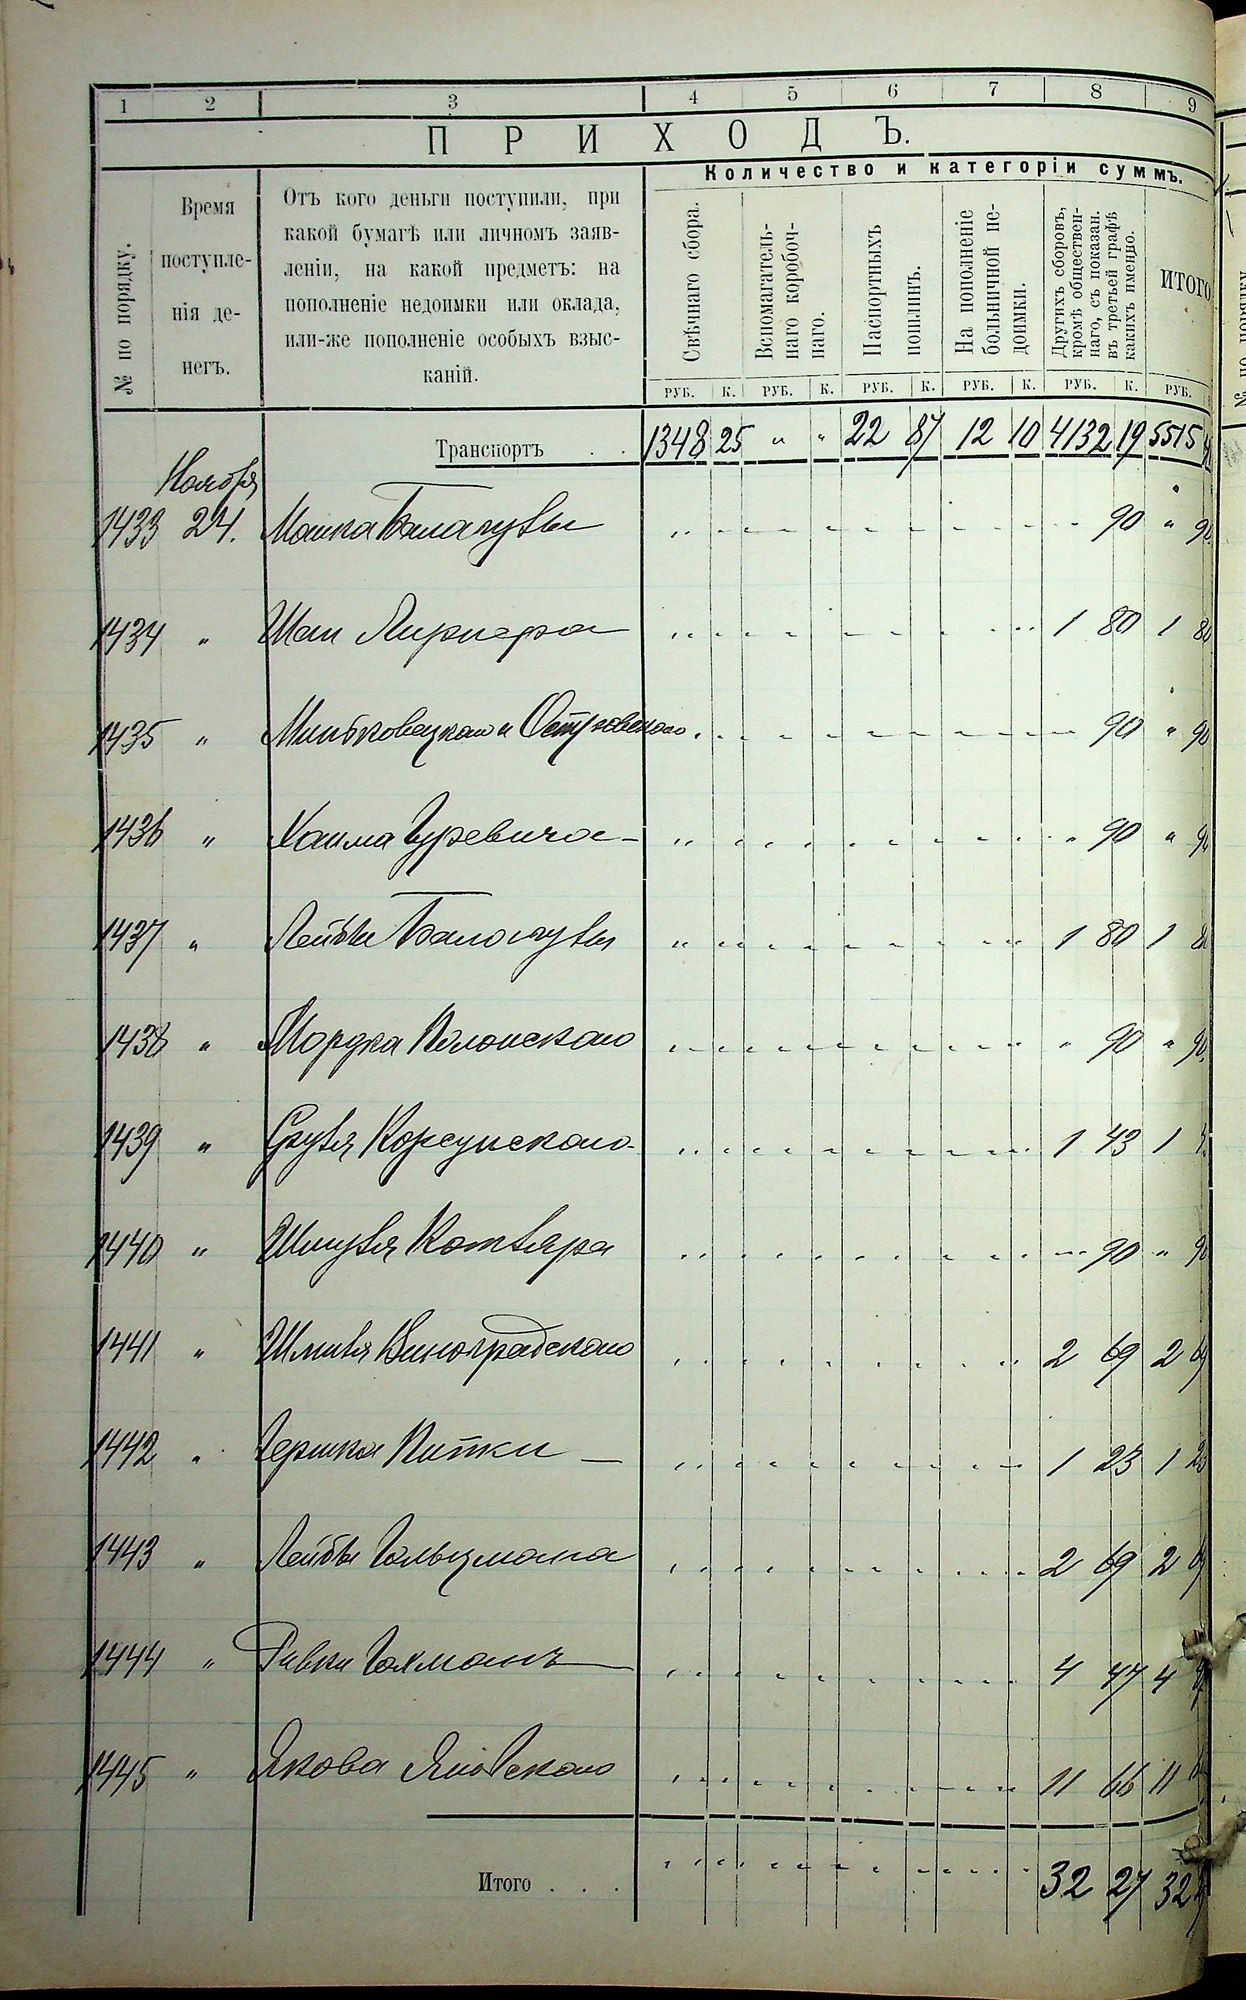 1 2 3 4 5 6 7 8 9
ПРИХОДЪ.
Количество и категоріи суммъ.
№ по порядку.
Время
поступле-
нія де-
негъ.
Отъ кого деньги поступили, при
какой бумагѣ или личномъ заяв-
леніи, на какой предметъ: на
пополненіе недоимки или оклада,
или-же пополненіе особыхъ взыс-
каній.
Свѣчнаго сбора.
Вспомагатель-
наго коробоч-
наго.
Паспортныхъ
пошлинъ.
На пополненіе
больничной не-
доимки.
Другихъ сборовъ,
кромѣ обществен-
наго, съ показан.
въ третьей графѣ
какихъ именно.
ИТОГО
РУБ. К. РУБ. К. РУБ. К. РУБ. К. РУБ. К. РУБ.
Транспортъ . . 1348 25 " " 22 87 12 10 4132 19 5515
Ноября
1433 24. Мошка 90 " 90
1434 " 1 80 1 80
1435 " Миньковецкаго и Островскаго 90 " 90
1436 " Хаима Гуревича " 90 " 90
1437 " Лейбы 1 80 1 80
1438 " Мордка Полонскаго " 90 " 90
1439 " Сруля Корсунскаго 1 43 1
1440 " Шмуля Котляра 90 " 90
1441 " Шмиля Виноградскаго 2 69 2 69
1442 " Гершка Питки 1 23 1 23
1443 " Лейбы Гольцмана 2 69 2 69
1444 " Ривки Гохманъ 4 47 4
1445 " Якова Яновскаго 11 66 11
Итого . . . 32 27 32